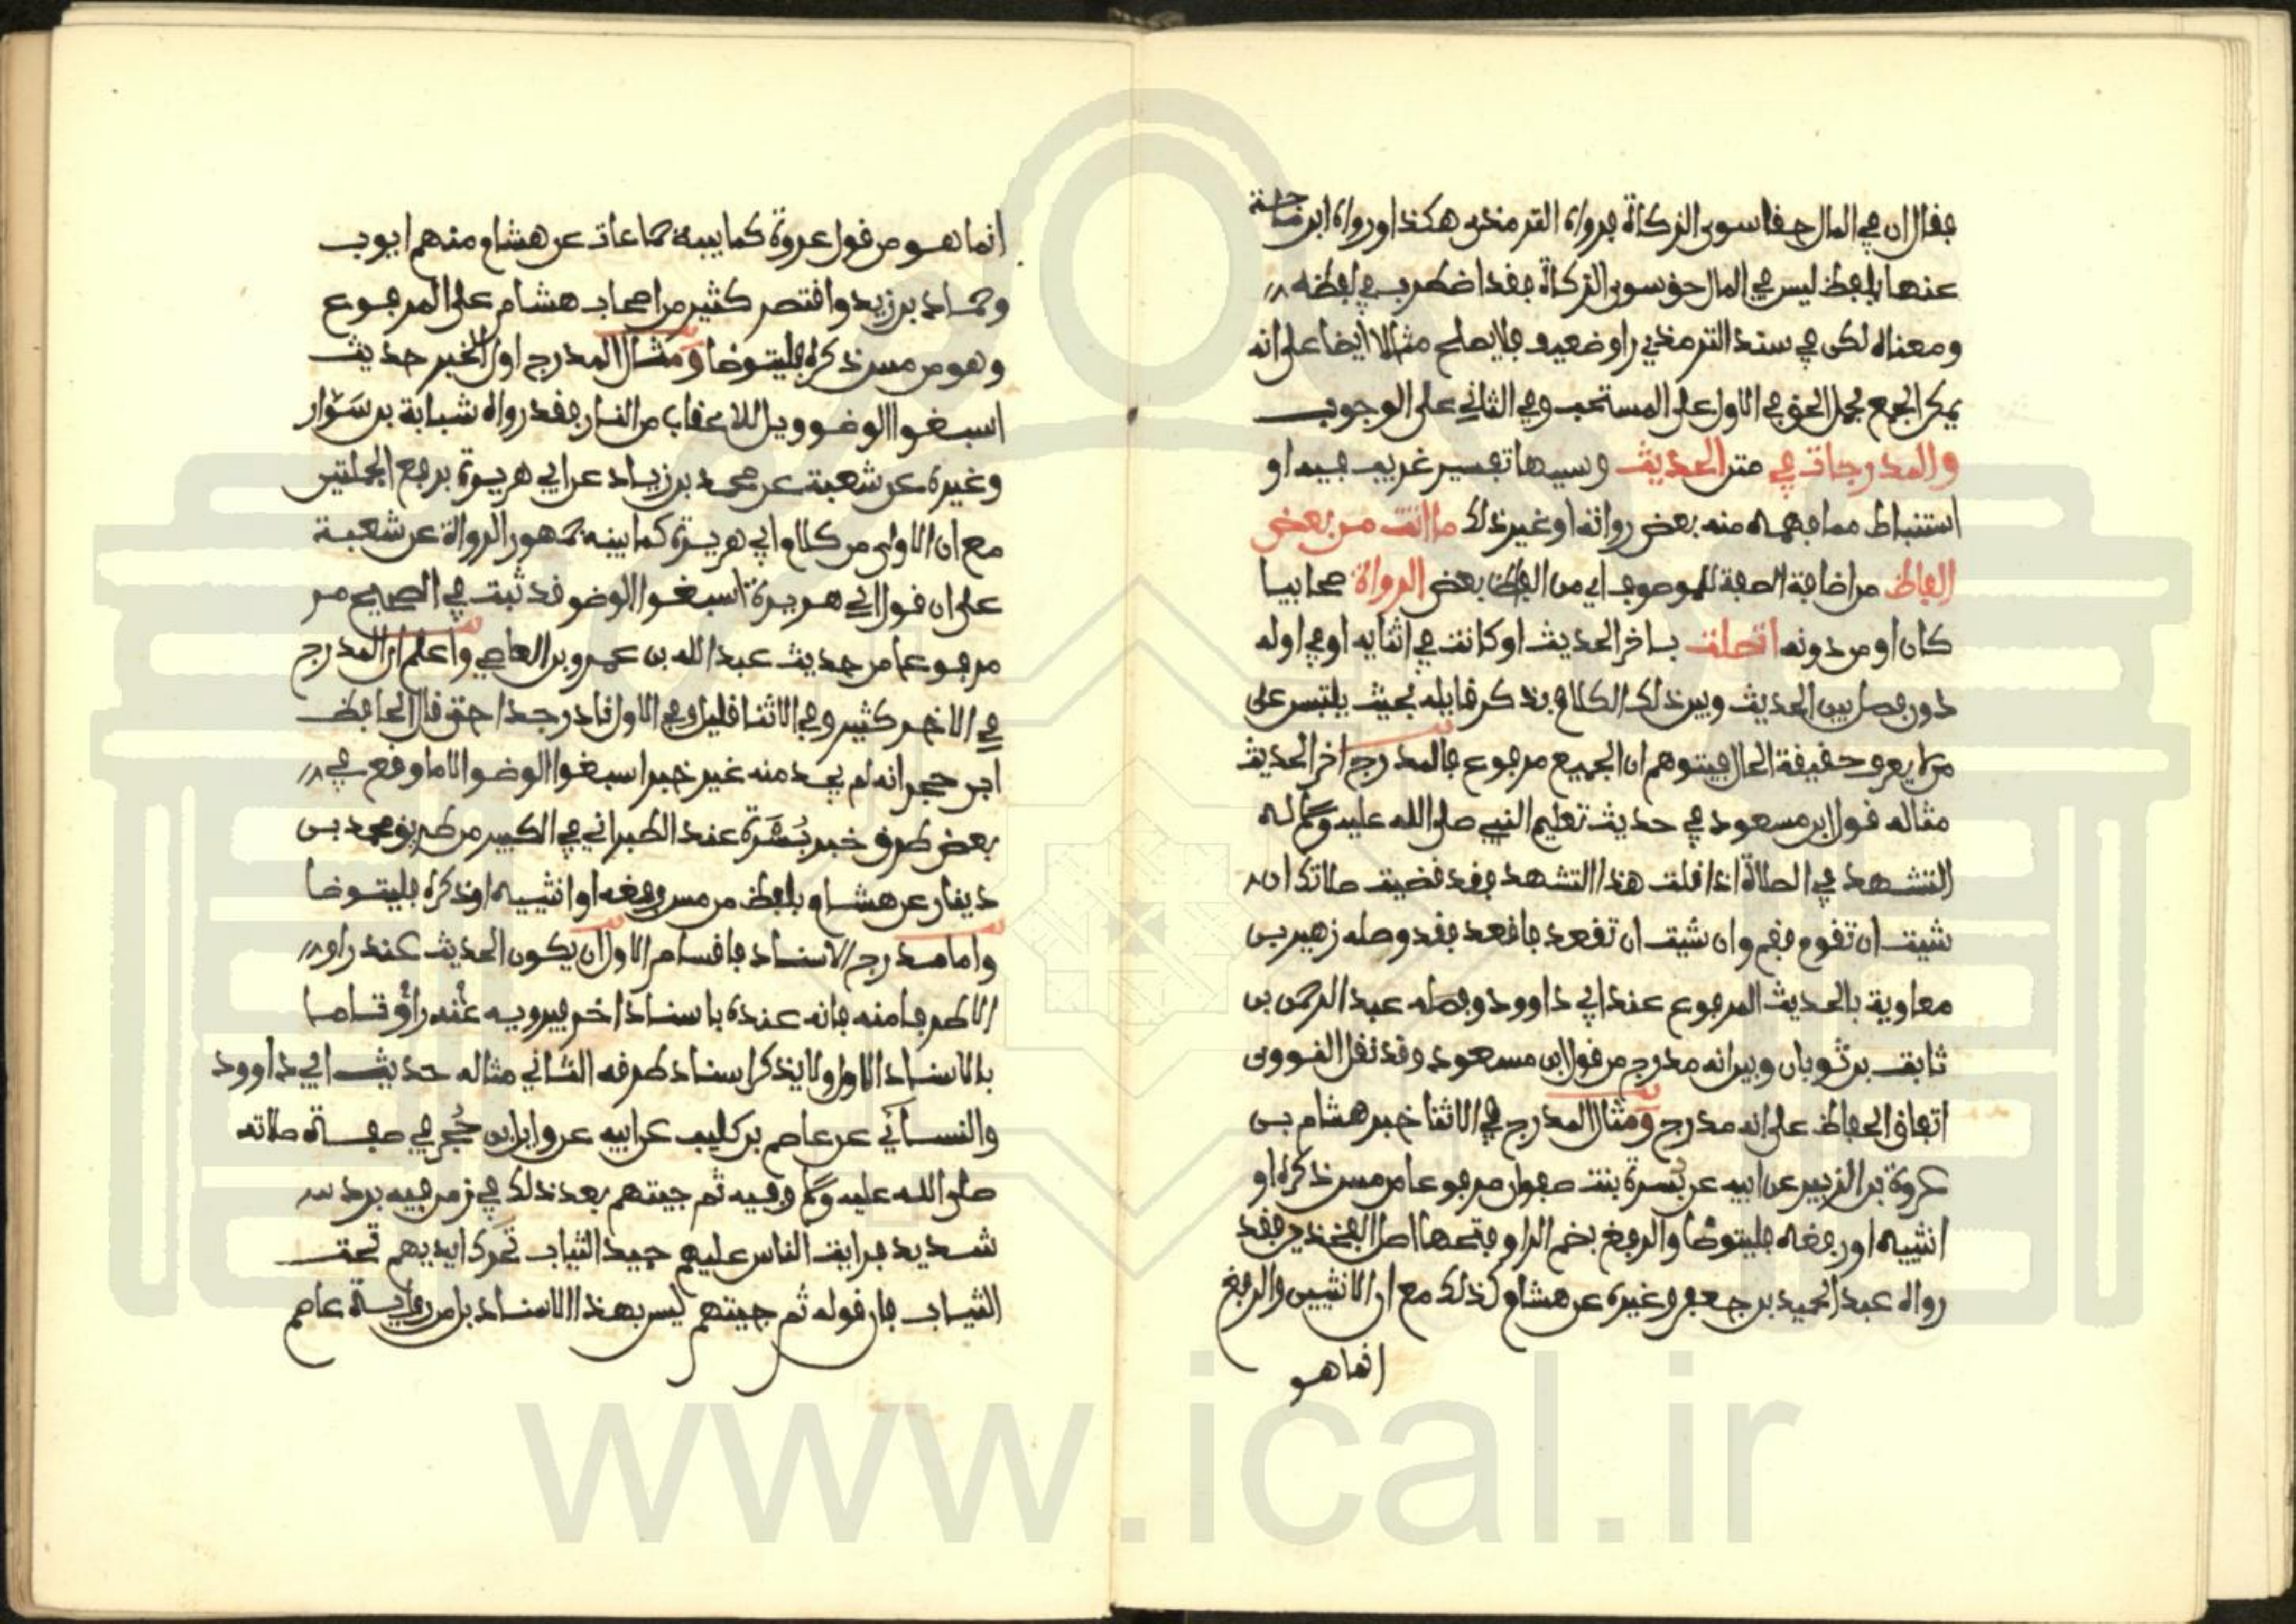 فقال ان في المال حقا سوى الزكاة فرواه الترمذي هكذا ورواه ابن ماجة
عنها بلفظ ليس في المال حق سوى الزكاة فقد اضطرب في لفظه
ومعناه لكن في سند الترمذي راو ضعيف فلا يصلح مثالا ايضا على انه
يمكن الجمع بحمل الحق في الاول على المستحب وفي الثاني على الوجوب
والمدرجات في متن الحديث وسببها تفسير غريب فيه او
استنباط مما فهمه منه بعض رواته او غير ذلك ما اتت من بعض
الفاظ من اضافة الصفة للموصوف اي من الفاظ بعض الرواة صحابيا
كان او من دونه اتصلت بآخر الحديث او كانت في اثنايه او في اوله
دون فصل بين الحديث وبين ذلك الكلام بذكر قايله بحيث يلتبس على
من لا يعرف حقيقة الحال فيتوهم ان الجميع مرفوع فالمدرج اخر الحديث
مثاله قول ابن مسعود في حديث تعليم النبي صلى الله عليه وسلم له
التشهد في الصلاة اذا قلت هذا التشهد فقد قضيت صلاتك ان
شيت ان تقوم فقم وان شيت ان تقعد فاقعد فقد وصله زهير بن
معاوية بالحديث المرفوع عند ابي داوود وفصله عبد الرحمن بن
ثابت بن ثوبان وبين انه مدرج من قول ابن مسعود وقد نقل النووي
اتفاق الحفاظ على انه مدرج ومثال المدرج في الاثنا خبر هشام بن
عروة بن الزبير عن ابيه عن بسرة بنت صفوان مرفوعا من مس ذكره او
انثييه او رفغه فليتوضا والرفغ بضم الرا وفتحها اصل الفخذين فقد
رواه عبد الحميد بن جعفر وغيره عن هشام كذلك مع ان الانثيين والرفغ
انما هو
انما هو من قول عروة كما بينه جماعات عن هشام منهم ايوب
وحماد بن زيد واقتصر كثير من اصحاب هشام على المرفوع
وهو من مس ذكره فليتوضا ومثال المدرج اول الخبر حديث
اسبغوا الوضو ويل للاعقاب من النار فقد رواه شبابة بن سوار
وغيره عن شعبة عن محمد بن زياد عن ابي هريرة برفع الجملتين
مع ان الاولى من كلام ابي هريرة كما بينه جمهور الرواة عن شعبة
على ان قول ابي هريرة اسبغوا الوضو قد ثبت في الصحيح مر
مرفوعا من حديث عبد الله بن عمرو بن العاصي واعلم ان المدرج
في الاخر كثير وفي الاثنا قليل وفي الاول نادر جدا حتى قال الحافظ
ابن حجر انه لم يجد منه غير خبر اسبغوا الوضو الا ما وقع في
بعض طرق خبر بسرة عند الطبراني في الكبير من طريق محمد بن
دينار عن هشام بلفظ من مس رفغه او انثييه او ذكره فليتوضا
واما مدرج الاسناد فاقسام الاول ان يكون الحديث عند راو
الا طرفا منه فانه عنده باسناد اخر فيرويه عنه راو تاما
بالاسناد الاول ولا يذكر اسناد طرفه الثاني مثاله حديث ابي داوود
والنسائي عن عاصم بن كليب عن ابيه عن وايل بن حجر في صفة صلاته
صلى الله عليه وسلم وفيه ثم جيتهم بعد ذلك في زمن فيه برد
شديد فرايت الناس عليهم جيد الثياب تحرك ايديهم تحت
الثياب فان قوله ثم جيتهم ليس بهذا الاسناد بل من رواية عاصم
www.ical.ir